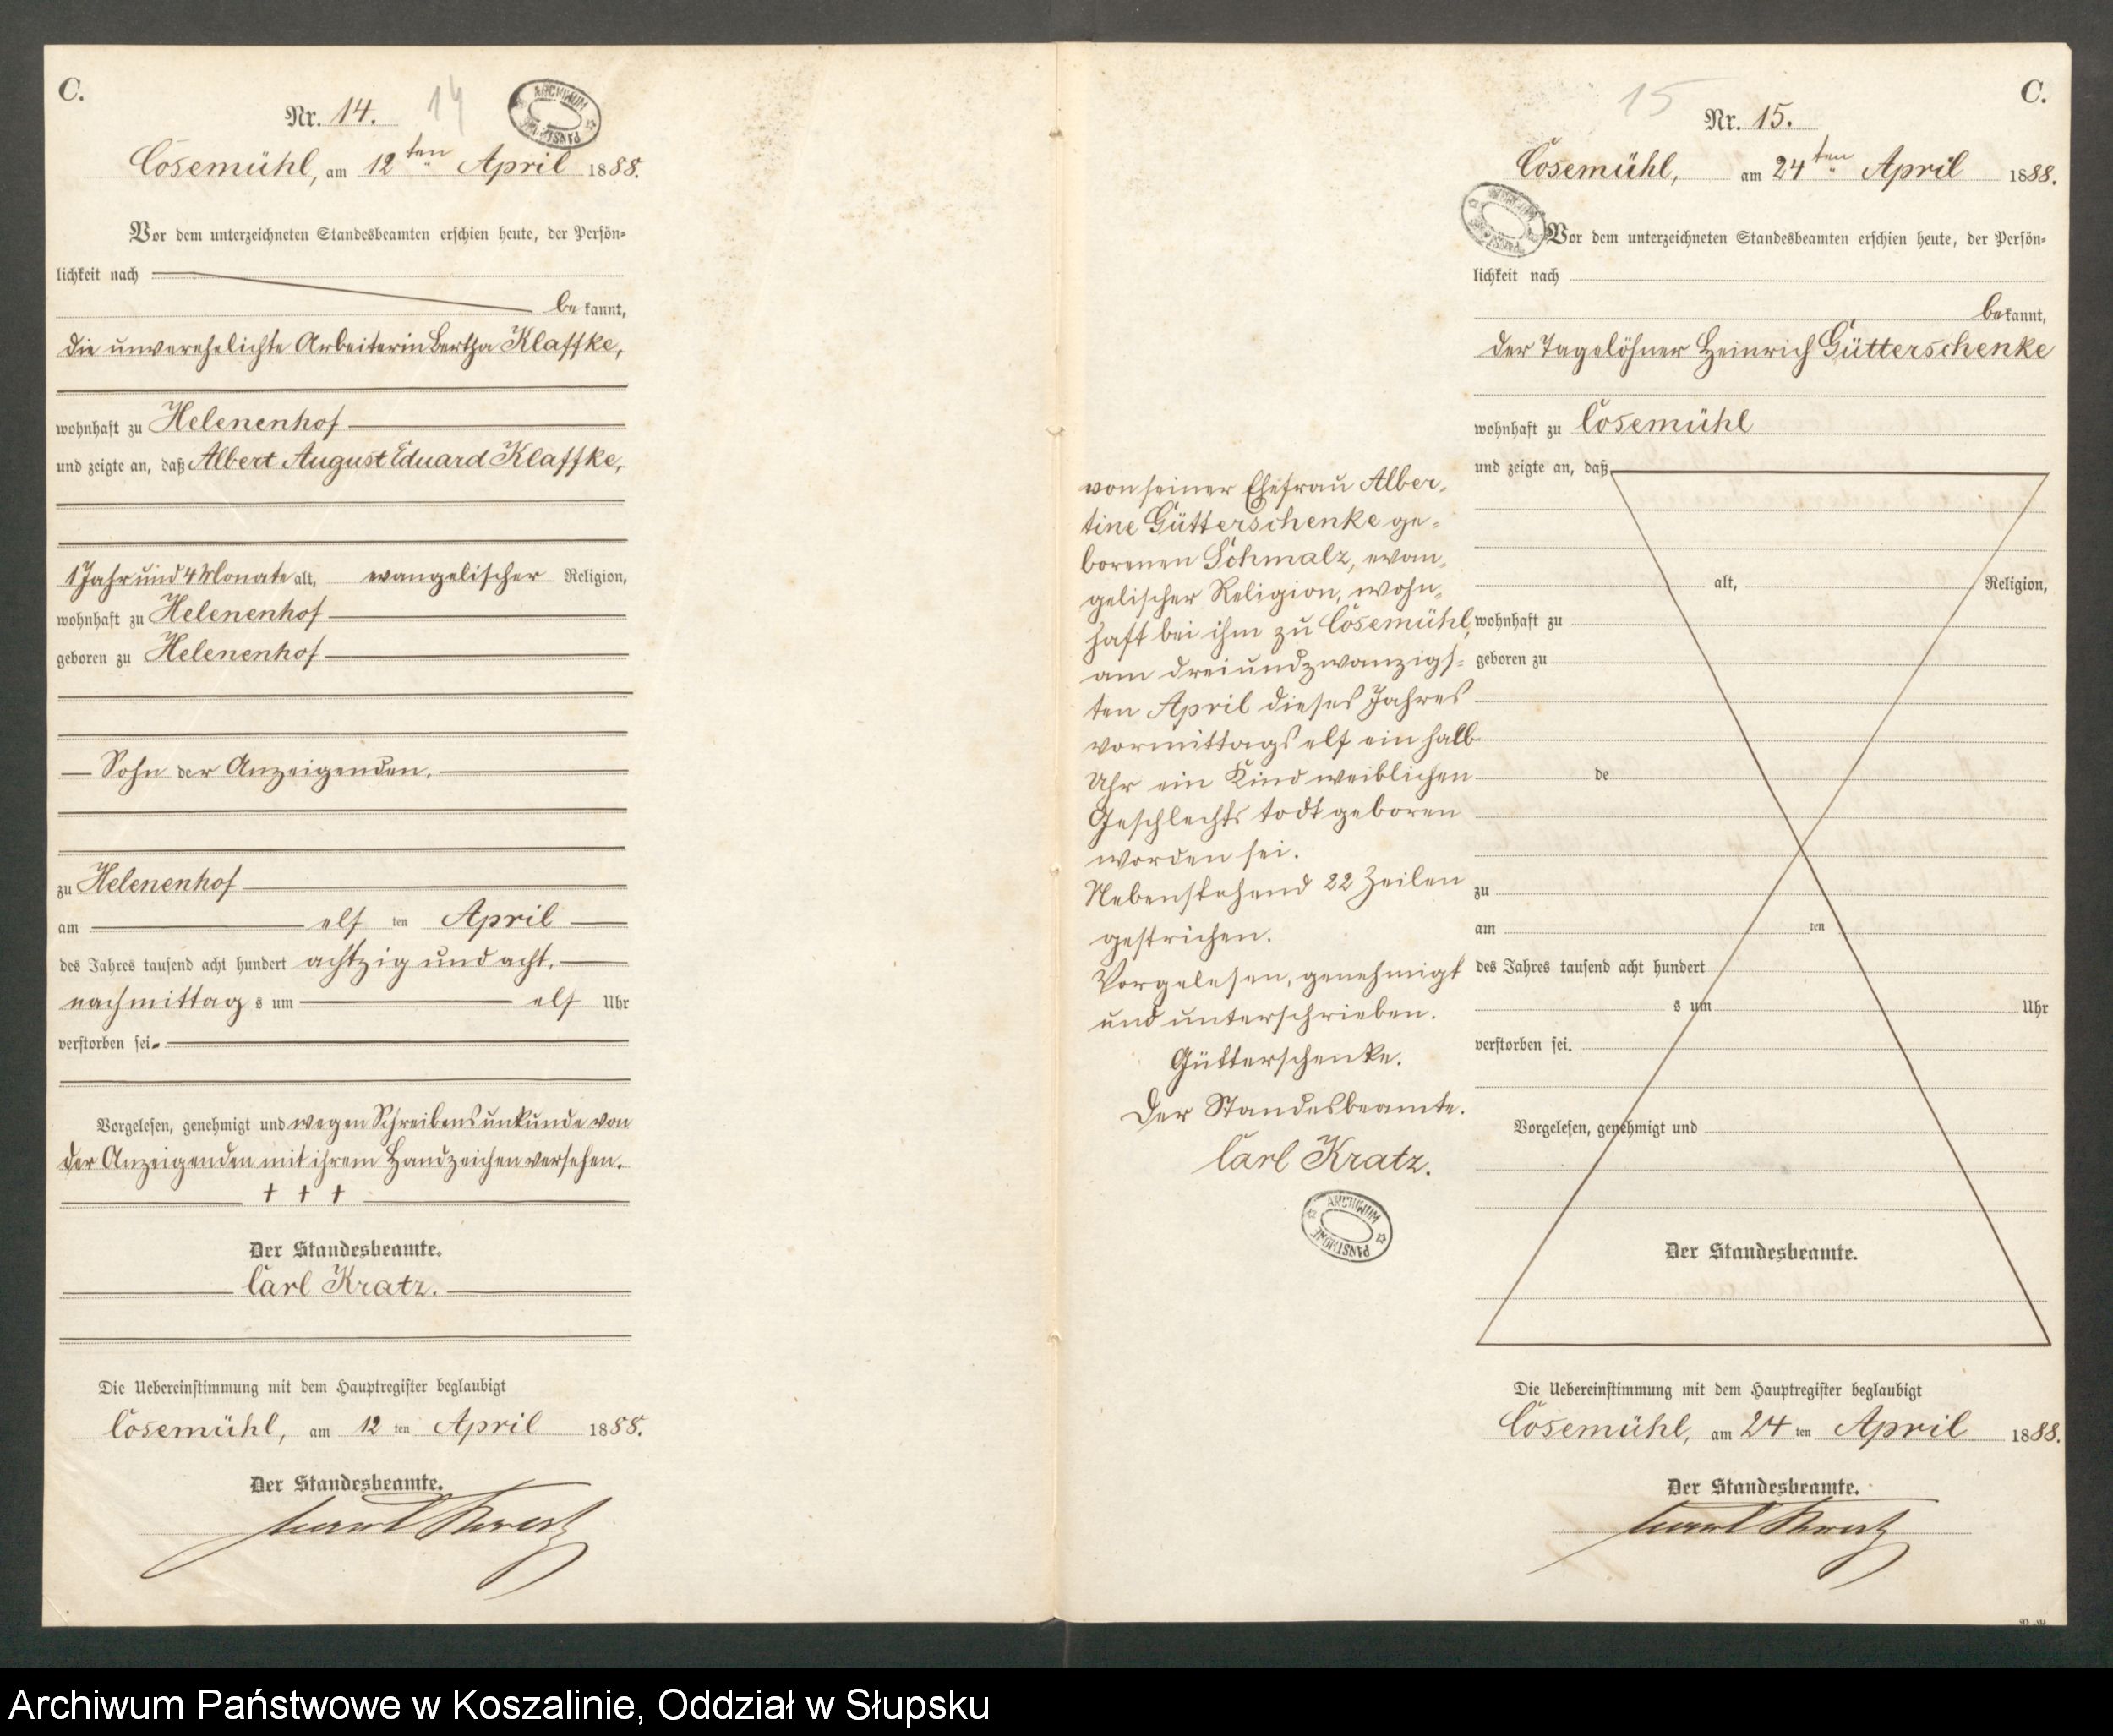 C.
Nr. 14. 14
ARCHIWUM PAŃSTWOWE
Cösemühl, am 12ten April 1888.
Vor dem unterzeichneten Standesbeamten erschien heute, der Persön-
lichkeit nach
be kannt,
die unverehelichte Arbeiterin Bertha Klaffke,
wohnhaft zu Helenenhof
und zeigte an, daß Albert August Eduard Klaffke,
1 Jahr und 4 Monate alt, evangelischer Religion,
wohnhaft zu Helenenhof
geboren zu Helenenhof
Sohn der Anzeigenden.
zu Helenenhof
am elf ten April
des Jahres tausend acht hundert achtzig und acht,
nachmittag s um elf Uhr
verstorben sei.
Vorgelesen, genehmigt und wegen Schreibensunkunde von
der Anzeigenden mit ihrem Handzeichen versehen.
+ + +
Der Standesbeamte.
Carl Kratz.
Die Uebereinstimmung mit dem Hauptregister beglaubigt
Cösemühl, am 12 ten April 1888.
Der Standesbeamte.
Carl Kratz
C.
15 Nr. 15.
Cösemühl, am 24ten April 1888.
ARCHIWUM PAŃSTWOWE
Vor dem unterzeichneten Standesbeamten erschien heute, der Persön-
lichkeit nach
bekannt,
der Tagelöhner Heinrich Gütterschenke
wohnhaft zu Cösemühl
und zeigte an, daß
alt, Religion,
wohnhaft zu
geboren zu
de
zu
am ten
des Jahres tausend acht hundert
s um Uhr
verstorben sei.
Vorgelesen, genehmigt und
Der Standesbeamte.
von seiner Ehefrau Alber-
tine Gütterschenke ge-
borenen Schmalz, evan-
gelischer Religion, wohn-
haft bei ihm zu Cösemühl,
am dreiundzwanzigs-
ten April dieses Jahres
vormittags elf ein halb
Uhr ein Kind weiblichen
Geschlechts todt geboren
worden sei.
Nebenstehend 22 Zeilen
gestrichen.
Vorgelesen, genehmigt
und unterschrieben.
Gütterschenke.
Der Standesbeamte.
Carl Kratz.
ARCHIWUM PAŃSTWOWE
Die Uebereinstimmung mit dem Hauptregister beglaubigt
Cösemühl, am 24 ten April 1888.
Der Standesbeamte.
Carl Kratz
Archiwum Państwowe w Koszalinie, Oddział w Słupsku